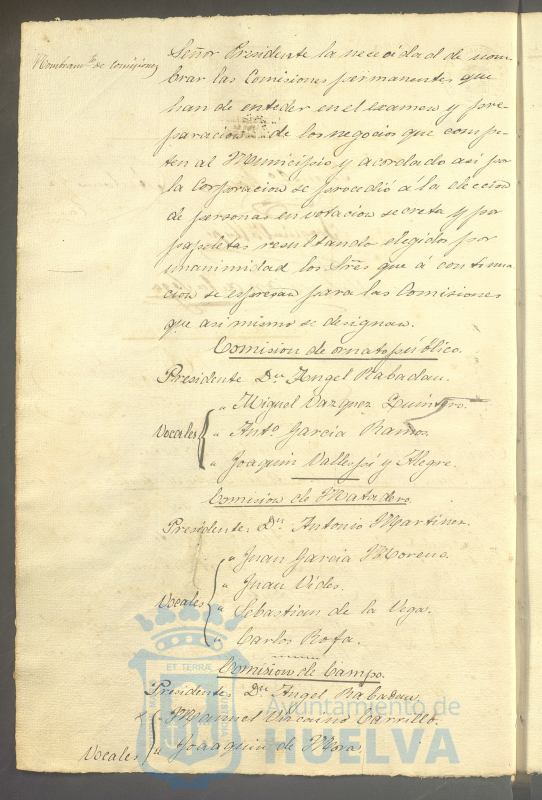 Nombramto de comisiones
Señor Presidente la necesidad de nom-
brar las Comisiones permanentes que
han de enteder en el examen y pre-
paracion de los negocios que compe-
ten al Municipio y acordado asi por
la Corporacion se procedió á la eleccion
de personas en votacion secreta y por
papeletas resultando elegidos por
unanimidad los Sres que á continua
cion se espresan para las Comisiones
que asi mismo se designan.
Comision de ornato público.
Presidente Dn Angel Rabadan.
" Miguel Vazquez Quintero.
Vocales " Anto Garcia Ramos.
" Joaquin Vallespi y Alegre.
Comision de Matadero.
Presidente. Dn Antonio Martinez.
" Juan Garcia Moreno.
" Juan Vides.
Vocales " Sebastian de la Vega.
" Carlos Rofa.
Comision de Campo.
Presidente Dn Angel Rabadan.
" Manuel Vizcaino Carrillo.
Vocales " Joaaquin de Mora
ET TERRÆ
Ayuntamiento de
HUELVA